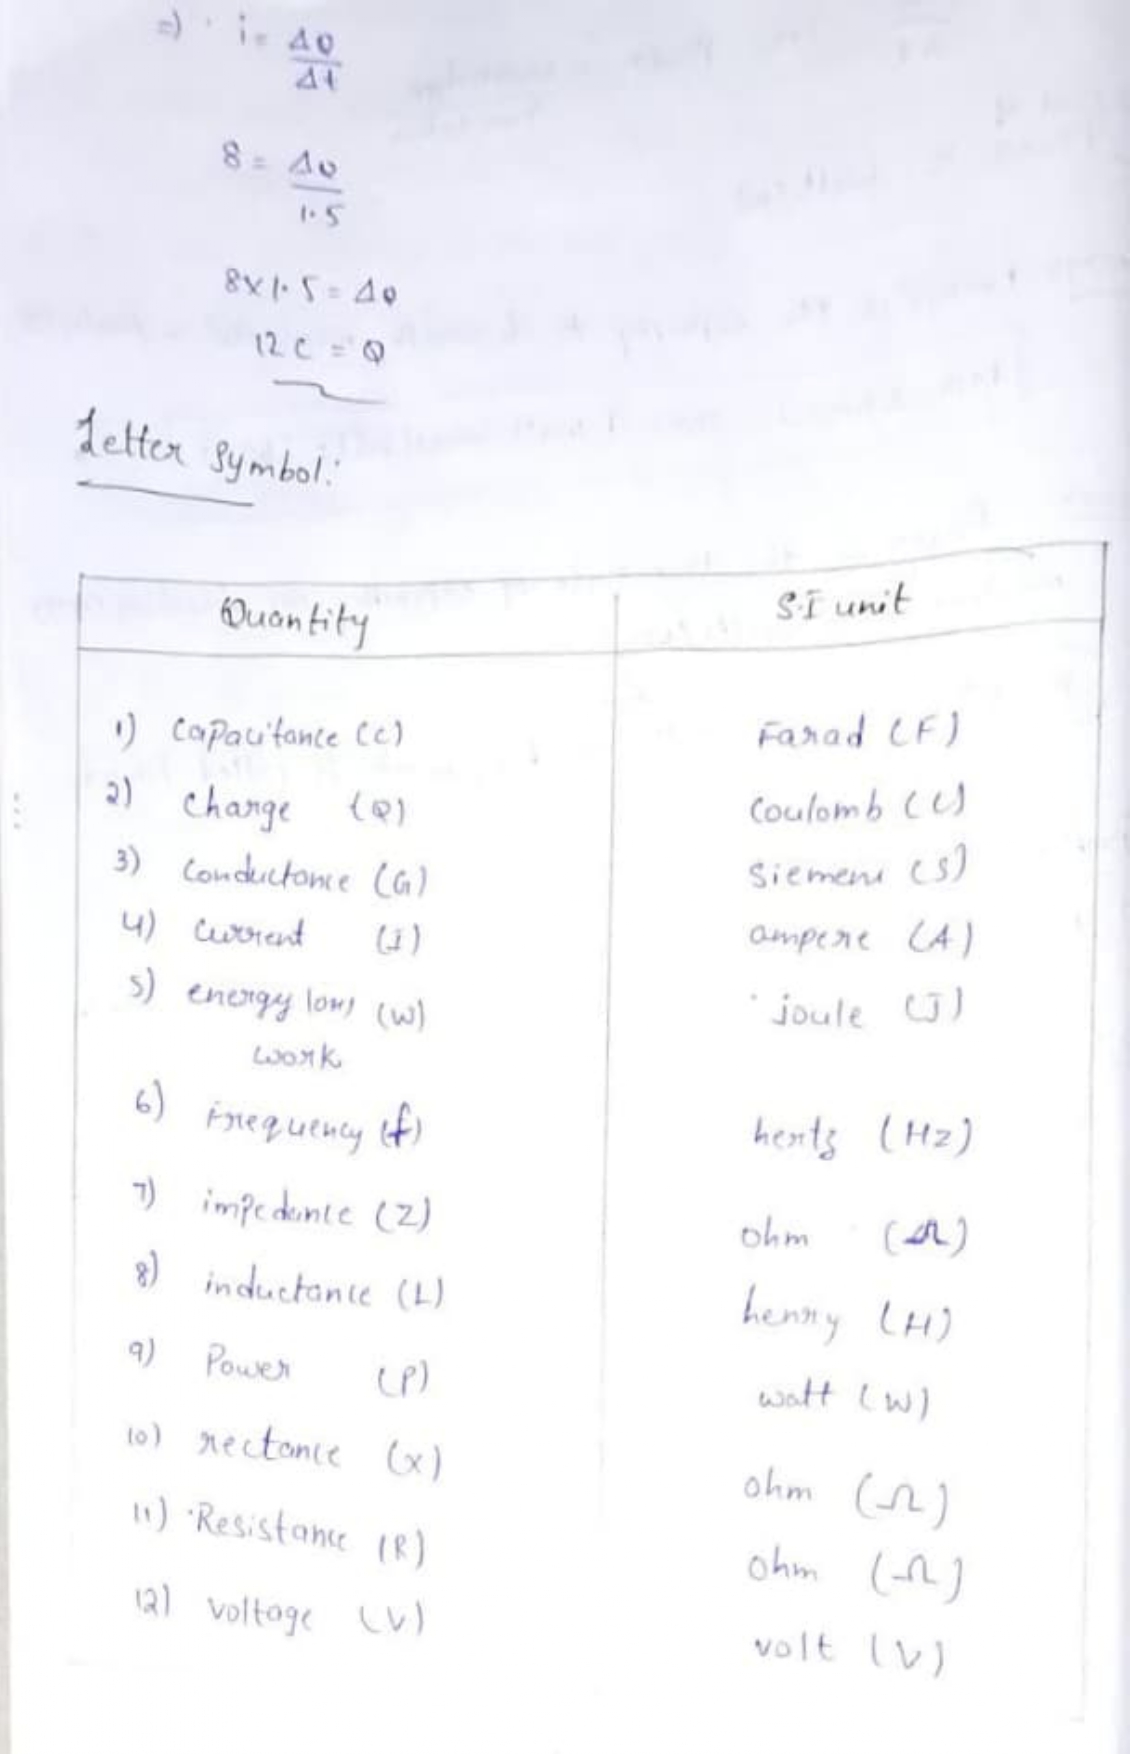 =) i = ΔQ
Δt
8 = ΔQ
1.5
8x1.5 = ΔQ
12 C = Q
Letter Symbol:
Quantity S.I unit
1) Capacitance (C) Farad (F)
2) Charge (Q) Coulomb (C)
3) Conductance (G) Siemens (S)
4) Current (i) ampere (A)
5) energy (W) joule (J)
work
6) Frequency (f) hertz (Hz)
7) impedance (Z) ohm (Ω)
8) inductance (L) henry (H)
9) Power (P) watt (W)
10) rectance (x) ohm (Ω)
11) Resistance (R) ohm (Ω)
12) voltage (V) volt (V)